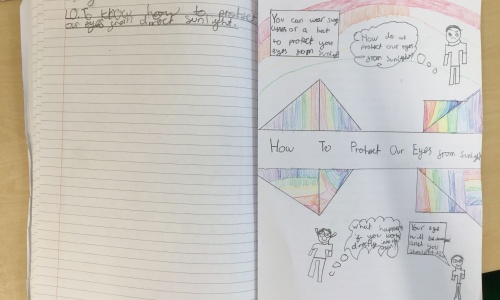 LO: To know how to protect
our eyes from direct sunlight.
You can wear sun
or a hat
to protect your
eyes from
How do we
protect our eyes
from sunlight?
How To Protect Our Eyes from Sunlight
What happens
if you
directly
Your eyes
will be damaged
and you